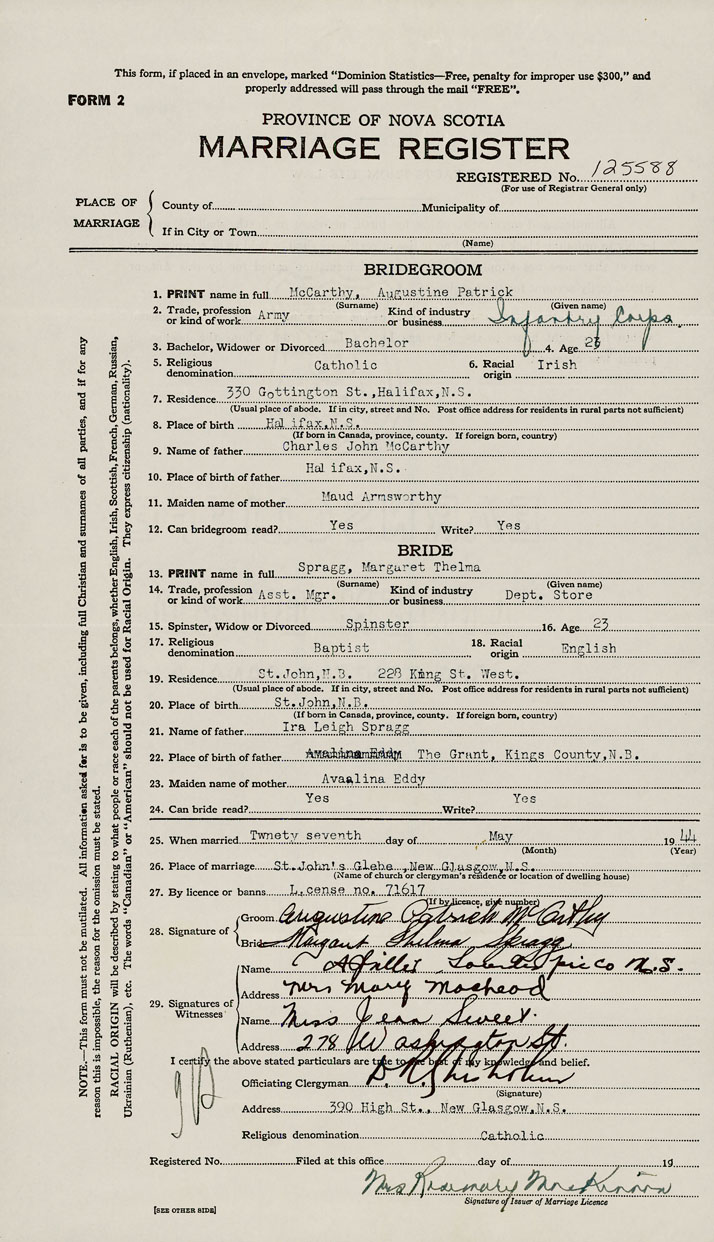 This form, if placed in an envelope, marked "Dominion Statistics—Free, penalty for improper use $300," and
properly addressed will pass through the mail "FREE".
FORM 2
PROVINCE OF NOVA SCOTIA
MARRIAGE REGISTER
REGISTERED No. 125588
(For use of Registrar General only)
PLACE OF MARRIAGE
County of Municipality of
If in City or Town
(Name)
BRIDEGROOM
1. PRINT name in full McCarthy, Augustine Patrick
(Surname) (Given name)
2. Trade, profession or kind of work Army Kind of industry or business Infantry Corps.
3. Bachelor, Widower or Divorced Bachelor 4. Age
5. Religious denomination Catholic 6. Racial origin Irish
7. Residence 330 Gottington St.,Halifax,N.S.
(Usual place of abode. If in city, street and No. Post office address for residents in rural parts not sufficient)
8. Place of birth Halifax,N.S.
(If born in Canada, province, county. If foreign born, country)
9. Name of father Charles John McCarthy
10. Place of birth of father Halifax,N.S.
11. Maiden name of mother Maud Armsworthy
12. Can bridegroom read? Yes Write? Yes
BRIDE
13. PRINT name in full Spragg, Margaret Thelma
(Surname) (Given name)
14. Trade, profession or kind of work Asst. Mgr. Kind of industry or business Dept. Store
15. Spinster, Widow or Divorced Spinster 16. Age 23
17. Religious denomination Baptist 18. Racial origin English
19. Residence St.John,N.B. 228 King St. West.
(Usual place of abode. If in city, street and No. Post office address for residents in rural parts not sufficient)
20. Place of birth St.John,N.B.
(If born in Canada, province, county. If foreign born, country)
21. Name of father Ira Leigh Spragg
22. Place of birth of father The Grant, Kings County,N.B.
23. Maiden name of mother Avaalina Eddy
24. Can bride read? Yes Write? Yes
25. When married Twnety seventh day of May 1944
(Month) (Year)
26. Place of marriage St.John's Glebe ,New Glasgow,N.S.
(Name of church or clergyman's residence or location of dwelling house)
27. By licence or banns License no. 71617
(If by licence, give number)
28. Signature of
Groom Augustine Patrick McCarthy
Bride Margaret Thelma Spragg
29. Signatures of Witnesses
Name
Address Mrs Mary
Name Miss Jean Sweet.
Address 278 Washington St.
I certify the above stated particulars are true to the best of my knowledge and belief.
Officiating Clergyman
(Signature)
Address 390 High St., New Glasgow,N.S.
Religious denomination Catholic
Registered No. Filed at this office day of 19
Mrs Rosemary MacKinnon
Signature of Issuer of Marriage Licence
[SEE OTHER SIDE]
NOTE.—This form must not be mutilated. All information asked for is to be given, including full Christian and surnames of all parties, and if for any
reason this is impossible, the reason for the omission must be stated.
RACIAL ORIGIN will be described by stating to what people or race each of the parents belongs, whether English, Irish, Scottish, French, German, Russian,
Ukrainian (Ruthenian), etc. The words "Canadian" or "American" should not be used for Racial Origin. They express citizenship (nationality).